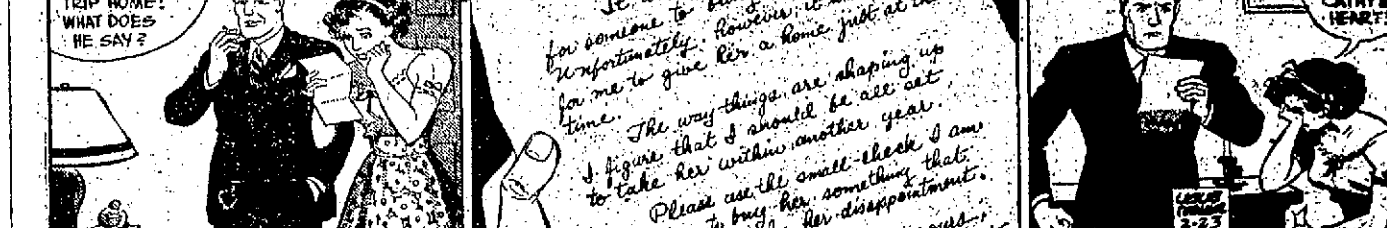 TRIP HOME!
WHAT DOES
HE SAY?
It
for someone to
Unfortunately, however it
for me to give her a home just at
time.
The way things are shaping up
I figure that I should be all set
to take her within another year.
Please use the small check I am
to buy her something that
her disappointment.
yours,
CATHY'S
HEART!
LESLIE
TURNER
2-23